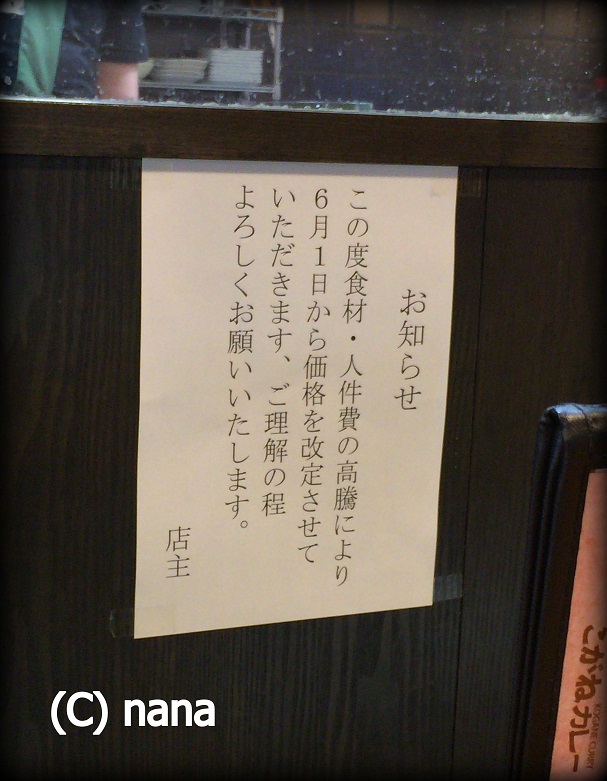 お知らせ
この度食材・人件費の高騰により
６月１日から価格を改定させて
いただきます、ご理解の程
よろしくお願いいたします。
店主
こがねカレー
KOGANE CURRY
(C) nana